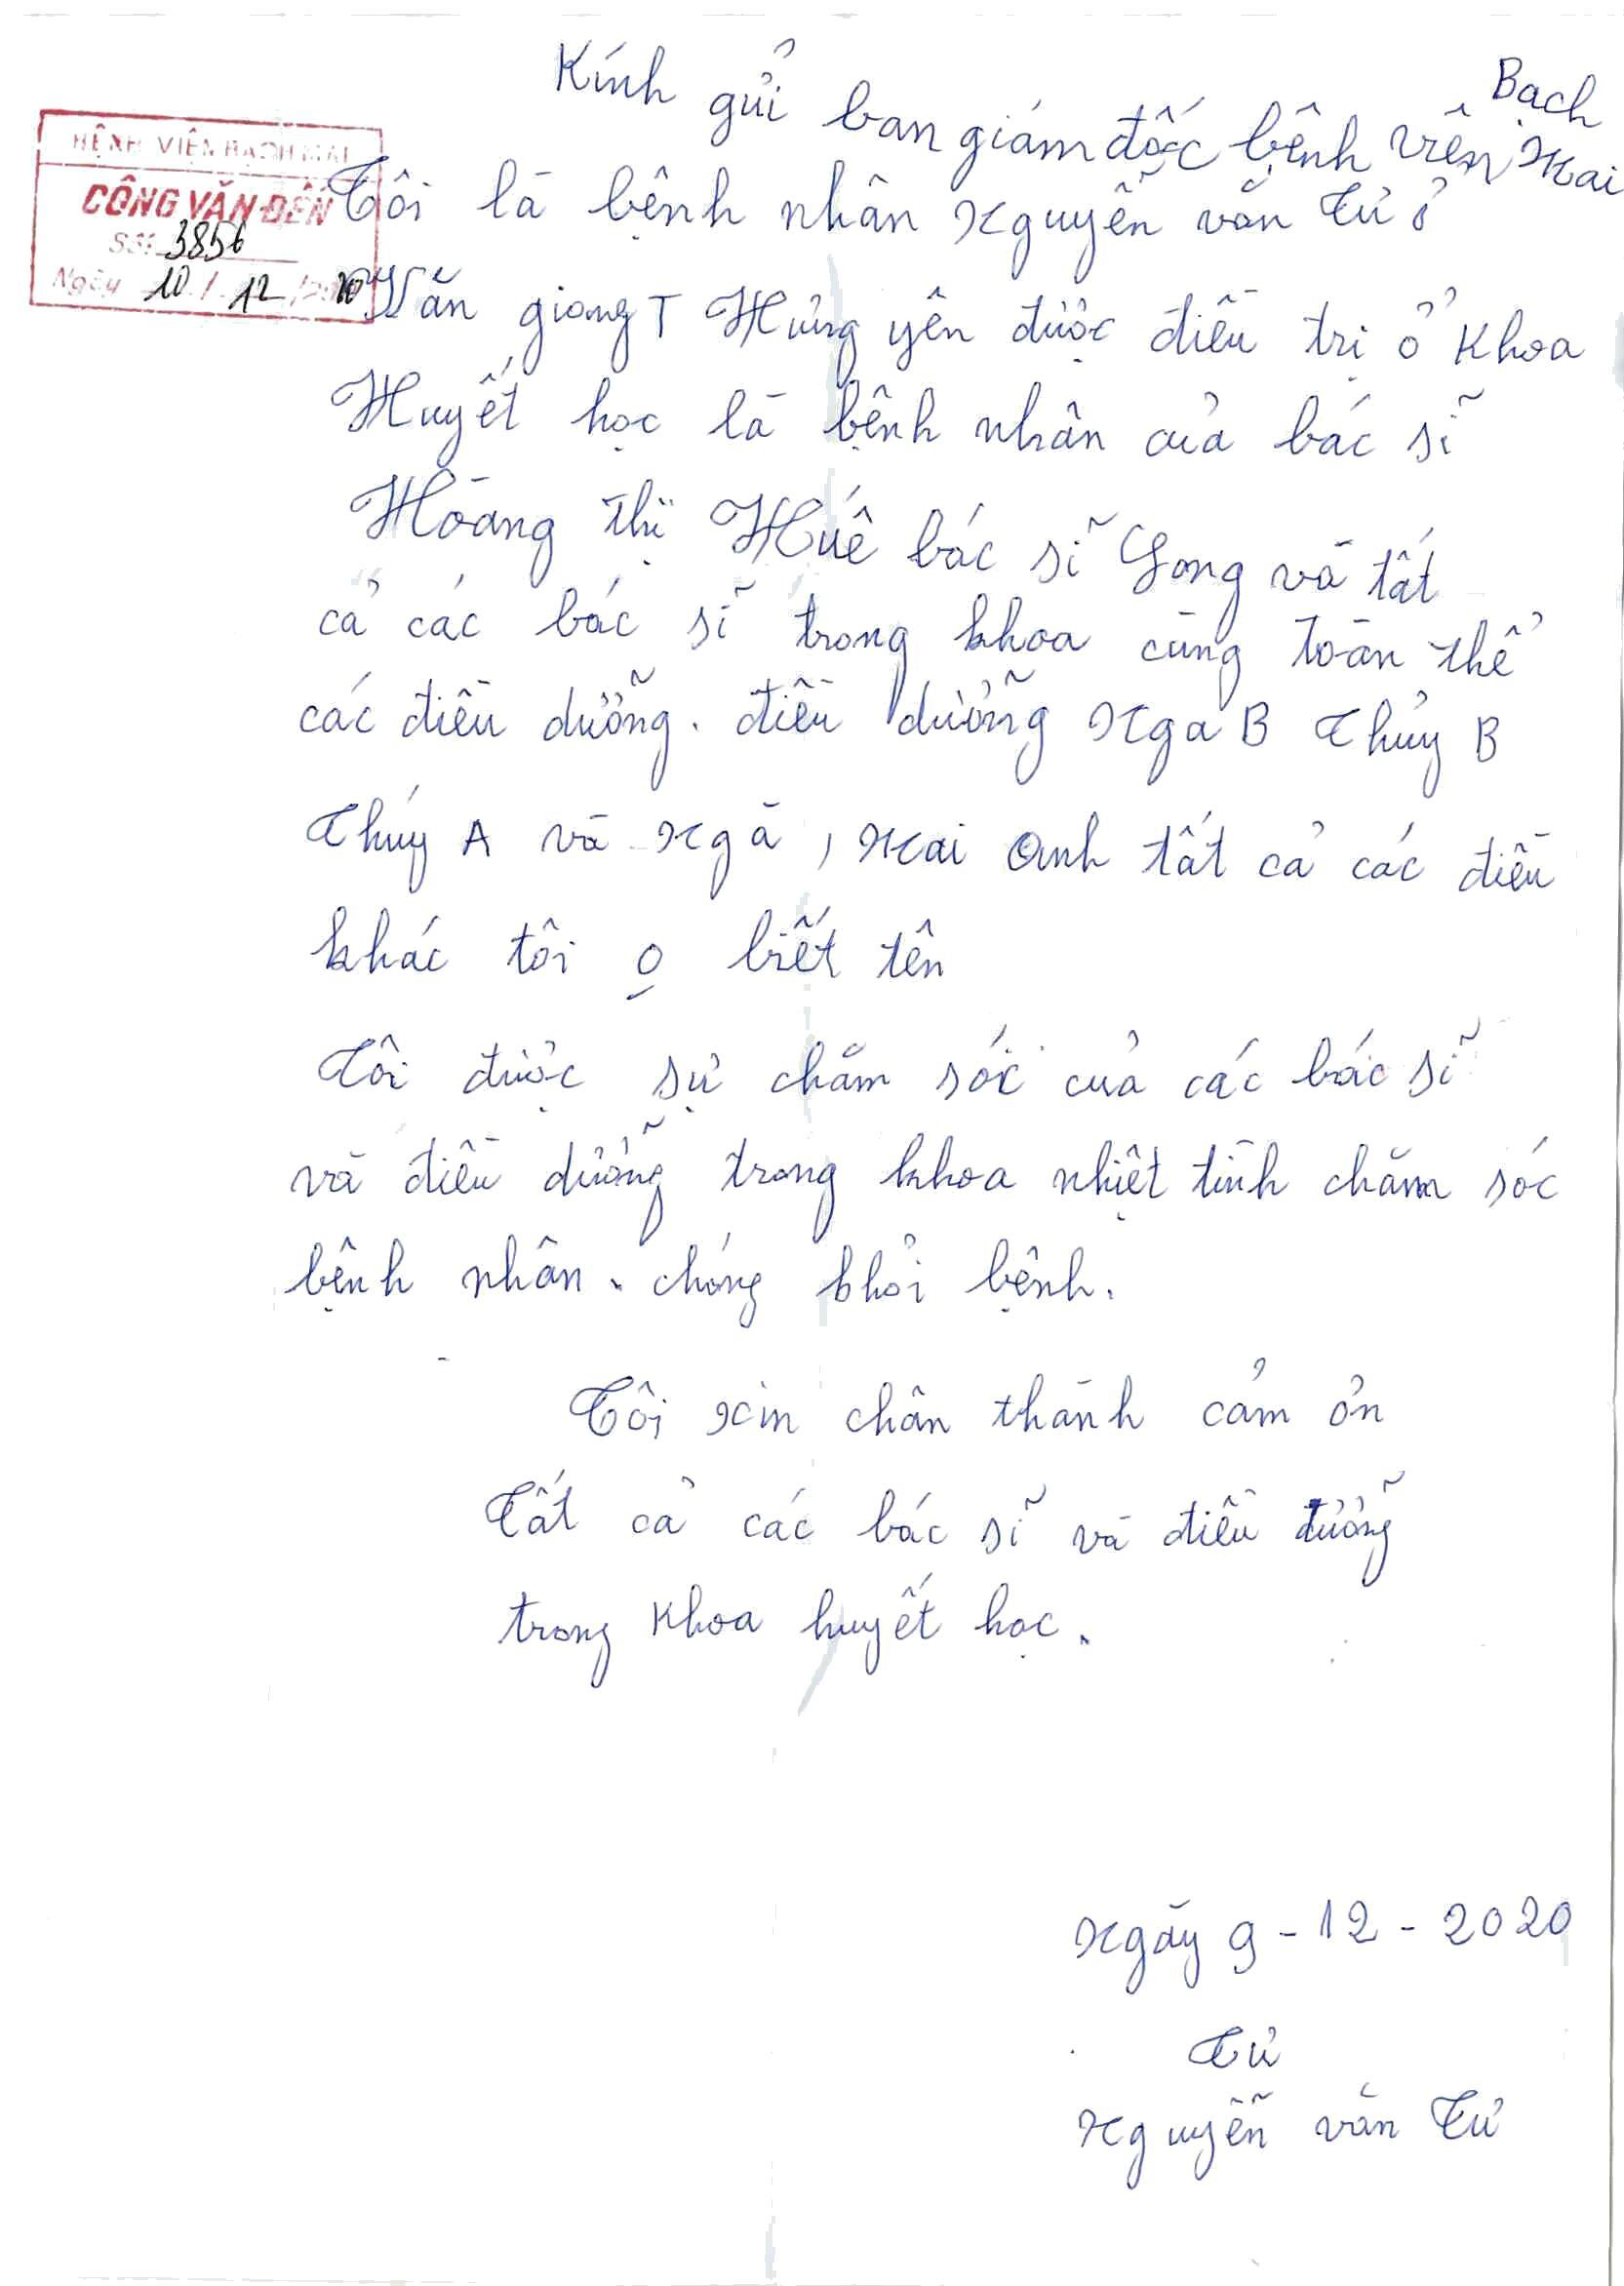 Kính gửi ban giám đốc bệnh viện Bạch Mai
BỆNH VIỆN BẠCH MAI
CÔNG VĂN ĐẾN
Số: 3856
Ngày 10/12/2020
Tôi là bệnh nhân Nguyễn văn Tư ở
Văn giang T Hưng yên được điều trị ở Khoa
Huyết học là bệnh nhân của bác sĩ
Hoàng thị Huê bác sĩ Long và tất
cả các bác sĩ trong khoa cùng toàn thể
các điều dưỡng. điều dưỡng Nga B Thủy B
Thúy A và Ngà, Mai Anh tất cả các điều
khác tôi o biết tên
Tôi được sự chăm sóc của các bác sĩ
và điều dưỡng trong khoa nhiệt tình chăm sóc
bệnh nhân. chóng khỏi bệnh.
Tôi xin chân thành cảm ơn
Tất cả các bác sĩ và điều dưỡng
trong Khoa huyết học.
Ngày 9-12-2020
Tư
Nguyễn văn Tư